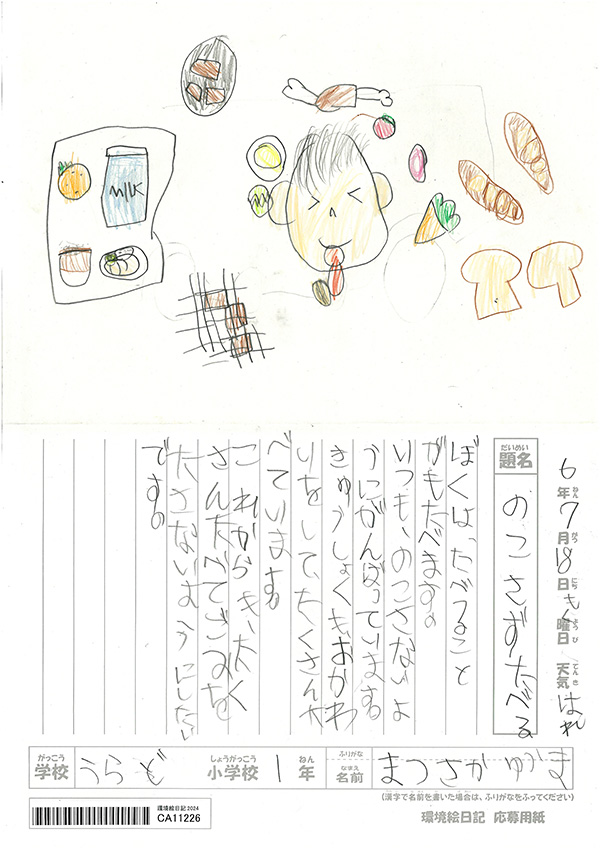 MILK
6年7月18日もく曜日 天気 はれ
ねん がつ にち ようび てんき
だいめい
題名 のこさずたべる
ぼくは、たべること
がもたべます。
いつも、のこさないよ
うにがんばっています。
きゅうしょくもおかわ
りをして、たくさんた
べています。
これからも、たく
さんたべてごみを
ださないようにしたい
です。
がっこう しょうがっこう ねん ふりがな
学校 うらど 小学校 1年 なまえ 名前 まつさか
(漢字で名前を書いた場合は、ふりがなをふってください)
環境絵日記 2024
CA11226
環境絵日記 応募用紙